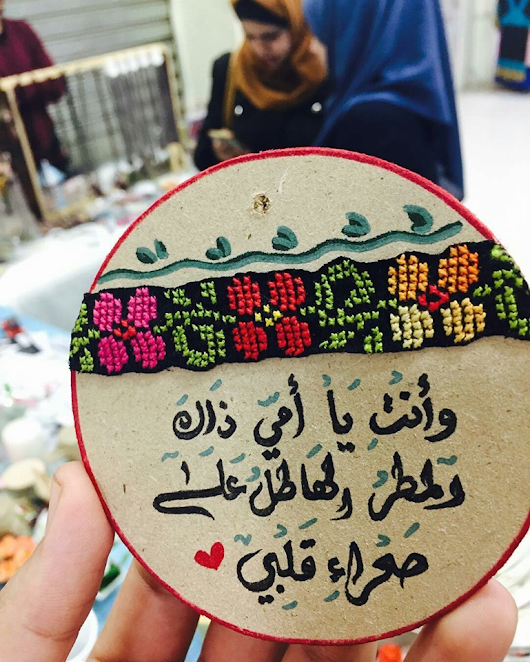 وأنتِ يا أمّي ذاكَ
المطرُ الهاطلُ على
صحراءِ قلبي